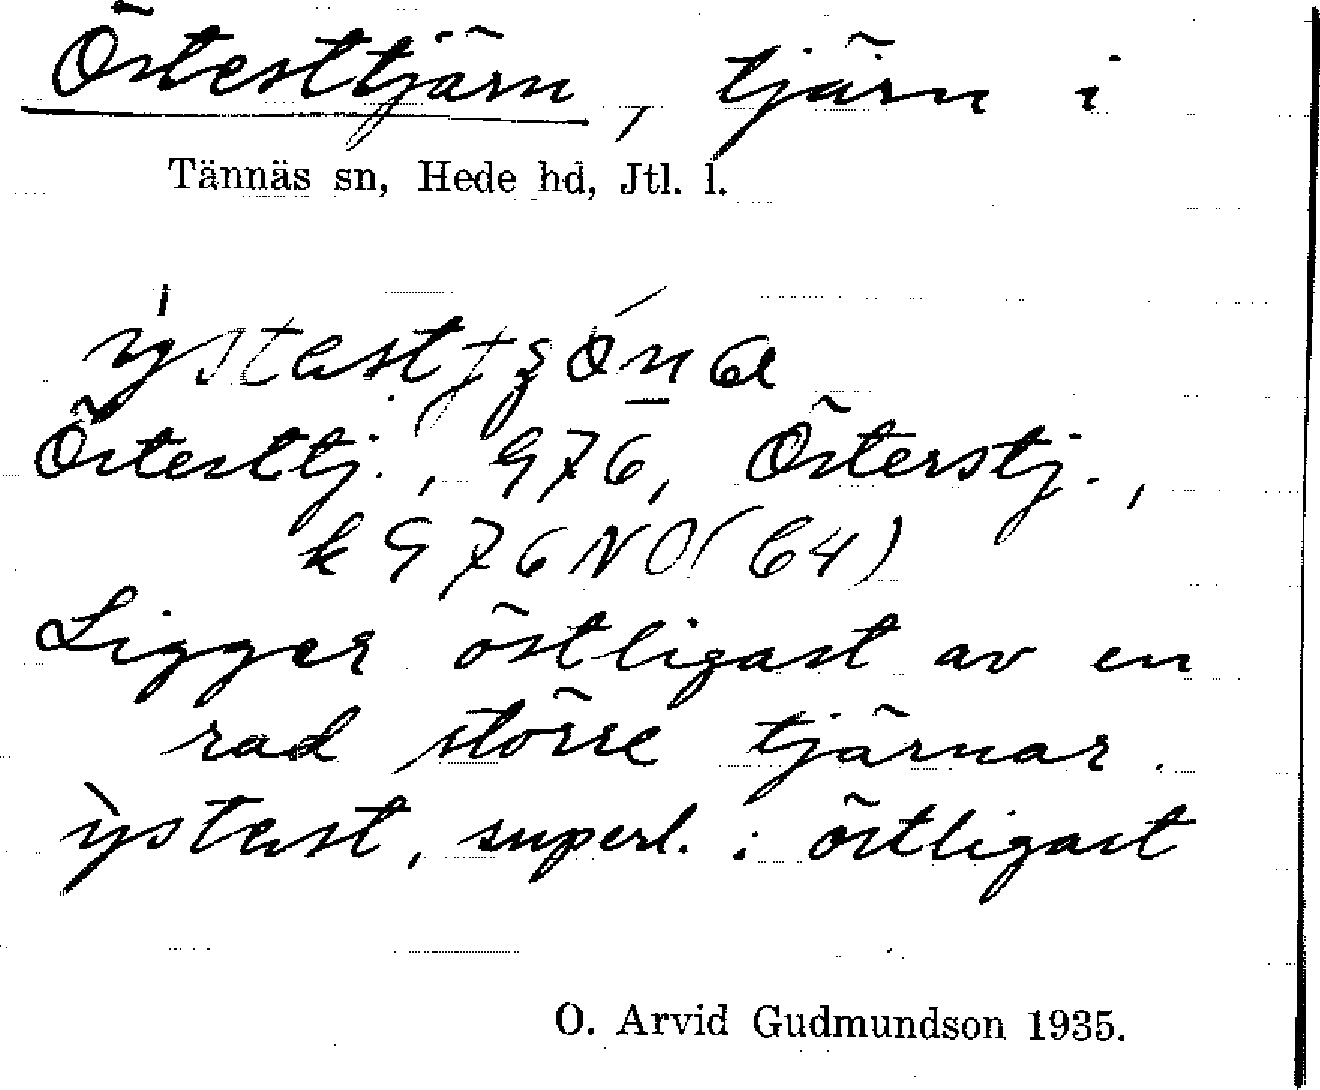 Östesttjärn, tjärn i
Tännäs sn, Hede hd, Jtl. l.
Östesttj., 976, Österstj.,
k 976 NO (64)
Ligger östligast av en
rad större tjärnar.
ỳstest, superl. : östligast
O. Arvid Gudmundson 1935.